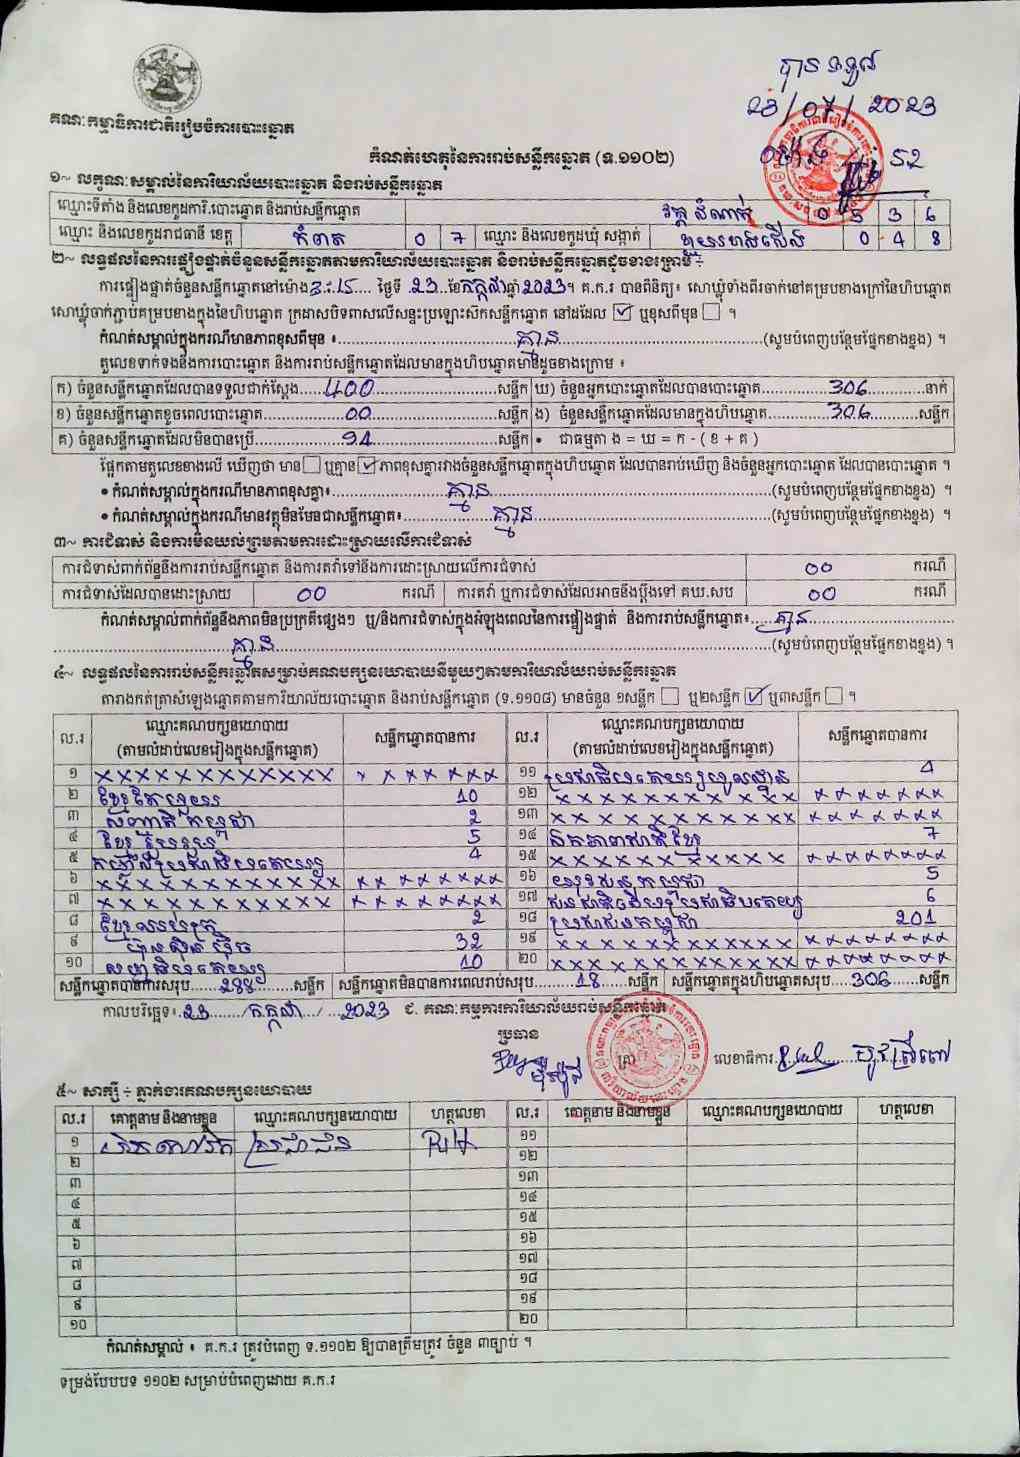 បានទទួល
23/07/2023
ម៉ោង 52
គណៈកម្មាធិការជាតិរៀបចំការបោះឆ្នោត
កំណត់ហេតុនៃការរាប់សន្លឹកឆ្នោត (ទ.១១០២)
១~ លក្ខណៈសម្គាល់នៃការិយាល័យបោះឆ្នោត និងរាប់សន្លឹកឆ្នោត
ឈ្មោះទីតាំង និងលេខកូដការិ.បោះឆ្នោត និងរាប់សន្លឹកឆ្នោត វត្ត ដំណាក់ 0 5 3 6
ឈ្មោះ និងលេខកូដរាជធានី ខេត្ត កំពត 0 7 ឈ្មោះ និងលេខកូដឃុំ សង្កាត់ 0 4 8
២~ លទ្ធផលនៃការផ្ទៀងផ្ទាត់ចំនួនសន្លឹកឆ្នោតតាមការិយាល័យបោះឆ្នោត និងរាប់សន្លឹកឆ្នោតដូចខាងក្រោម ÷
ការផ្ទៀងផ្ទាត់ចំនួនសន្លឹកឆ្នោតនៅម៉ោង 3:15 ថ្ងៃទី 23 ខែ កក្កដា ឆ្នាំ 2023។ គ.ក.រ បានពិនិត្យ៖ សោឃ្លុំទាំងពីរចាក់នៅគម្របខាងក្រៅនៃហិបឆ្នោត
សោឃ្លុំចាក់ភ្ជាប់គម្របខាងក្នុងនៃហិបឆ្នោត ក្រដាសបិទពាសលើសន្ទះប្រឡោះសឹកសន្លឹកឆ្នោត នៅដដែល ☑ ឬខុសពីមុន ☐ ។
កំណត់សម្គាល់ក្នុងករណីមានភាពខុសពីមុន ៖ គ្មាន (សូមបំពេញបន្ថែមផ្នែកខាងខ្នង) ។
តួលេខទាក់ទងនឹងការបោះឆ្នោត និងការរាប់សន្លឹកឆ្នោតដែលមានក្នុងហិបឆ្នោតមានដូចខាងក្រោម ៖
ក) ចំនួនសន្លឹកឆ្នោតដែលបានទទួលជាក់ស្តែង 400 សន្លឹក ឃ) ចំនួនអ្នកបោះឆ្នោតដែលបានបោះឆ្នោត 306 នាក់
ខ) ចំនួនសន្លឹកឆ្នោតខូចពេលបោះឆ្នោត 00 សន្លឹក ង) ចំនួនសន្លឹកឆ្នោតដែលមានក្នុងហិបឆ្នោត 306 សន្លឹក
គ) ចំនួនសន្លឹកឆ្នោតដែលមិនបានប្រើ 94 សន្លឹក • ជាធម្មតា ង = ឃ = ក - ( ខ + គ )
ផ្អែកតាមតួលេខខាងលើ ឃើញថា មាន ☐ ឬគ្មាន ☑ ភាពខុសគ្នារវាងចំនួនសន្លឹកឆ្នោតក្នុងហិបឆ្នោត ដែលបានរាប់ឃើញ និងចំនួនអ្នកបោះឆ្នោត ដែលបានបោះឆ្នោត ។
• កំណត់សម្គាល់ក្នុងករណីមានភាពខុសគ្នា៖ គ្មាន (សូមបំពេញបន្ថែមផ្នែកខាងខ្នង) ។
• កំណត់សម្គាល់ក្នុងករណីមានវត្ថុមិនមែនជាសន្លឹកឆ្នោត៖ គ្មាន (សូមបំពេញបន្ថែមផ្នែកខាងខ្នង) ។
៣~ ការជំទាស់ និងការមិនយល់ព្រមតាមការដោះស្រាយលើការជំទាស់
ការជំទាស់ពាក់ព័ន្ធនឹងការរាប់សន្លឹកឆ្នោត និងការតវ៉ាទៅនឹងការដោះស្រាយលើការជំទាស់ 00 ករណី
ការជំទាស់ដែលបានដោះស្រាយ 00 ករណី ការតវ៉ា ឬការជំទាស់ដែលអាចនឹងប្តឹងទៅ គឃ.សប 00 ករណី
កំណត់សម្គាល់ពាក់ព័ន្ធនឹងភាពមិនប្រក្រតីផ្សេងៗ ឬ/និងការជំទាស់ក្នុងអំឡុងពេលនៃការផ្ទៀងផ្ទាត់ និងការរាប់សន្លឹកឆ្នោត៖ គ្មាន
គ្មាន (សូមបំពេញបន្ថែមផ្នែកខាងខ្នង) ។
៤~ លទ្ធផលនៃការរាប់សន្លឹកឆ្នោតសម្រាប់គណបក្សនយោបាយនីមួយៗតាមការិយាល័យរាប់សន្លឹកឆ្នោត
តារាងកត់ត្រាសំឡេងឆ្នោតតាមការិយាល័យបោះឆ្នោត និងរាប់សន្លឹកឆ្នោត (ទ.១១០៨) មានចំនួន ១សន្លឹក ☐ ឬ២សន្លឹក ☑ ឬ៣សន្លឹក ☐ ។
ល.រ ឈ្មោះគណបក្សនយោបាយ (តាមលំដាប់លេខរៀងក្នុងសន្លឹកឆ្នោត) សន្លឹកឆ្នោតបានការ ល.រ ឈ្មោះគណបក្សនយោបាយ (តាមលំដាប់លេខរៀងក្នុងសន្លឹកឆ្នោត) សន្លឹកឆ្នោតបានការ
១ xxxxxxxxxxxx xxxxxxx ១១ 4
២ ខ្មែរតែមួយ 10 ១២ xxxxxxxxxxx xxxxxxx
៣ សញ្ជាតិកម្ពុជា 2 ១៣ xxxxxxxxxxxx xxxxxxx
៤ 5 ១៤ ឯកភាពជាតិខ្មែរ 7
៥ កម្លាំងប្រជាធិបតេយ្យ 4 ១៥ xxxxxxxxxxx xxxxxxx
៦ xxxxxxxxxxxx xxxxxxx ១៦ យុវជនកម្ពុជា 5
៧ xxxxxxxxxxx xxxxxxx ១៧ 6
៨ 2 ១៨ ប្រជាជនកម្ពុជា 201
៩ ហ៊្វុនស៊ិនប៉ិច 32 ១៩ xxxxxxxxxxxx xxxxxxx
១០ 10 ២០ xxxxxxxxxxxx xxxxxxx
សន្លឹកឆ្នោតបានការសរុប 288 សន្លឹក សន្លឹកឆ្នោតមិនបានការពេលរាប់សរុប 18 សន្លឹក សន្លឹកឆ្នោតក្នុងហិបឆ្នោតសរុប 306 សន្លឹក
កាលបរិច្ឆេទ៖ 23 / កក្កដា / 2023 ជ. គណៈកម្មការការិយាល័យរាប់សន្លឹកឆ្នោត
ប្រធាន
លេខាធិការ
៥~ សាក្សី ÷ ភ្នាក់ងារគណបក្សនយោបាយ
ល.រ គោត្តនាម និងនាមខ្លួន ឈ្មោះគណបក្សនយោបាយ ហត្ថលេខា ល.រ គោត្តនាម និងនាមខ្លួន ឈ្មោះគណបក្សនយោបាយ ហត្ថលេខា
១ ប្រជាជន ១១
២ ១២
៣ ១៣
៤ ១៤
៥ ១៥
៦ ១៦
៧ ១៧
៨ ១៨
៩ ១៩
១០ ២០
កំណត់សម្គាល់ ៖ គ.ក.រ ត្រូវបំពេញ ទ.១១០២ ឱ្យបានត្រឹមត្រូវ ចំនួន ៣ច្បាប់ ។
ទម្រង់បែបបទ ១១០២ សម្រាប់បំពេញដោយ គ.ក.រ